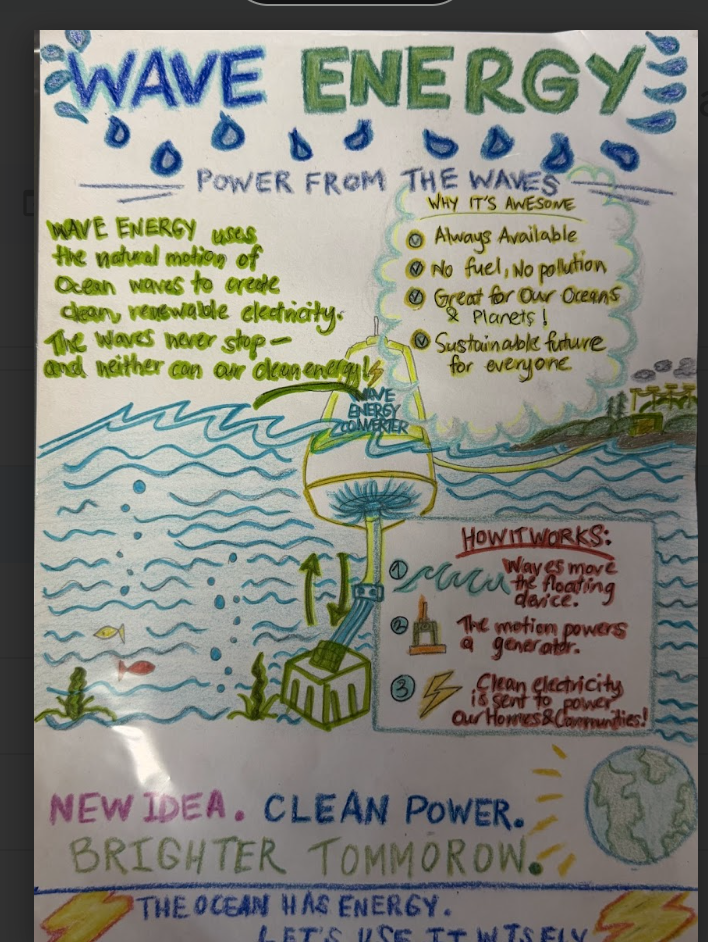 WAVE ENERGY
POWER FROM THE WAVES
WAVE ENERGY uses
the natural motion of
Ocean waves to create
clean, renewable electricity.
The waves never stop—
and neither can our clean energy!
WHY IT'S AWESOME
Always Available
No fuel, No pollution
Great for Our Oceans
& Planets!
Sustainable future
for everyone
WAVE
ENERGY
CONVERTER
HOW IT WORKS:
1 Waves move
the floating
device.
2 The motion powers
a generator.
3 Clean electricity
is sent to power
Our Homes & Communities!
NEW IDEA. CLEAN POWER.
BRIGHTER TOMMOROW.
THE OCEAN HAS ENERGY.
LET'S USE IT WISELY